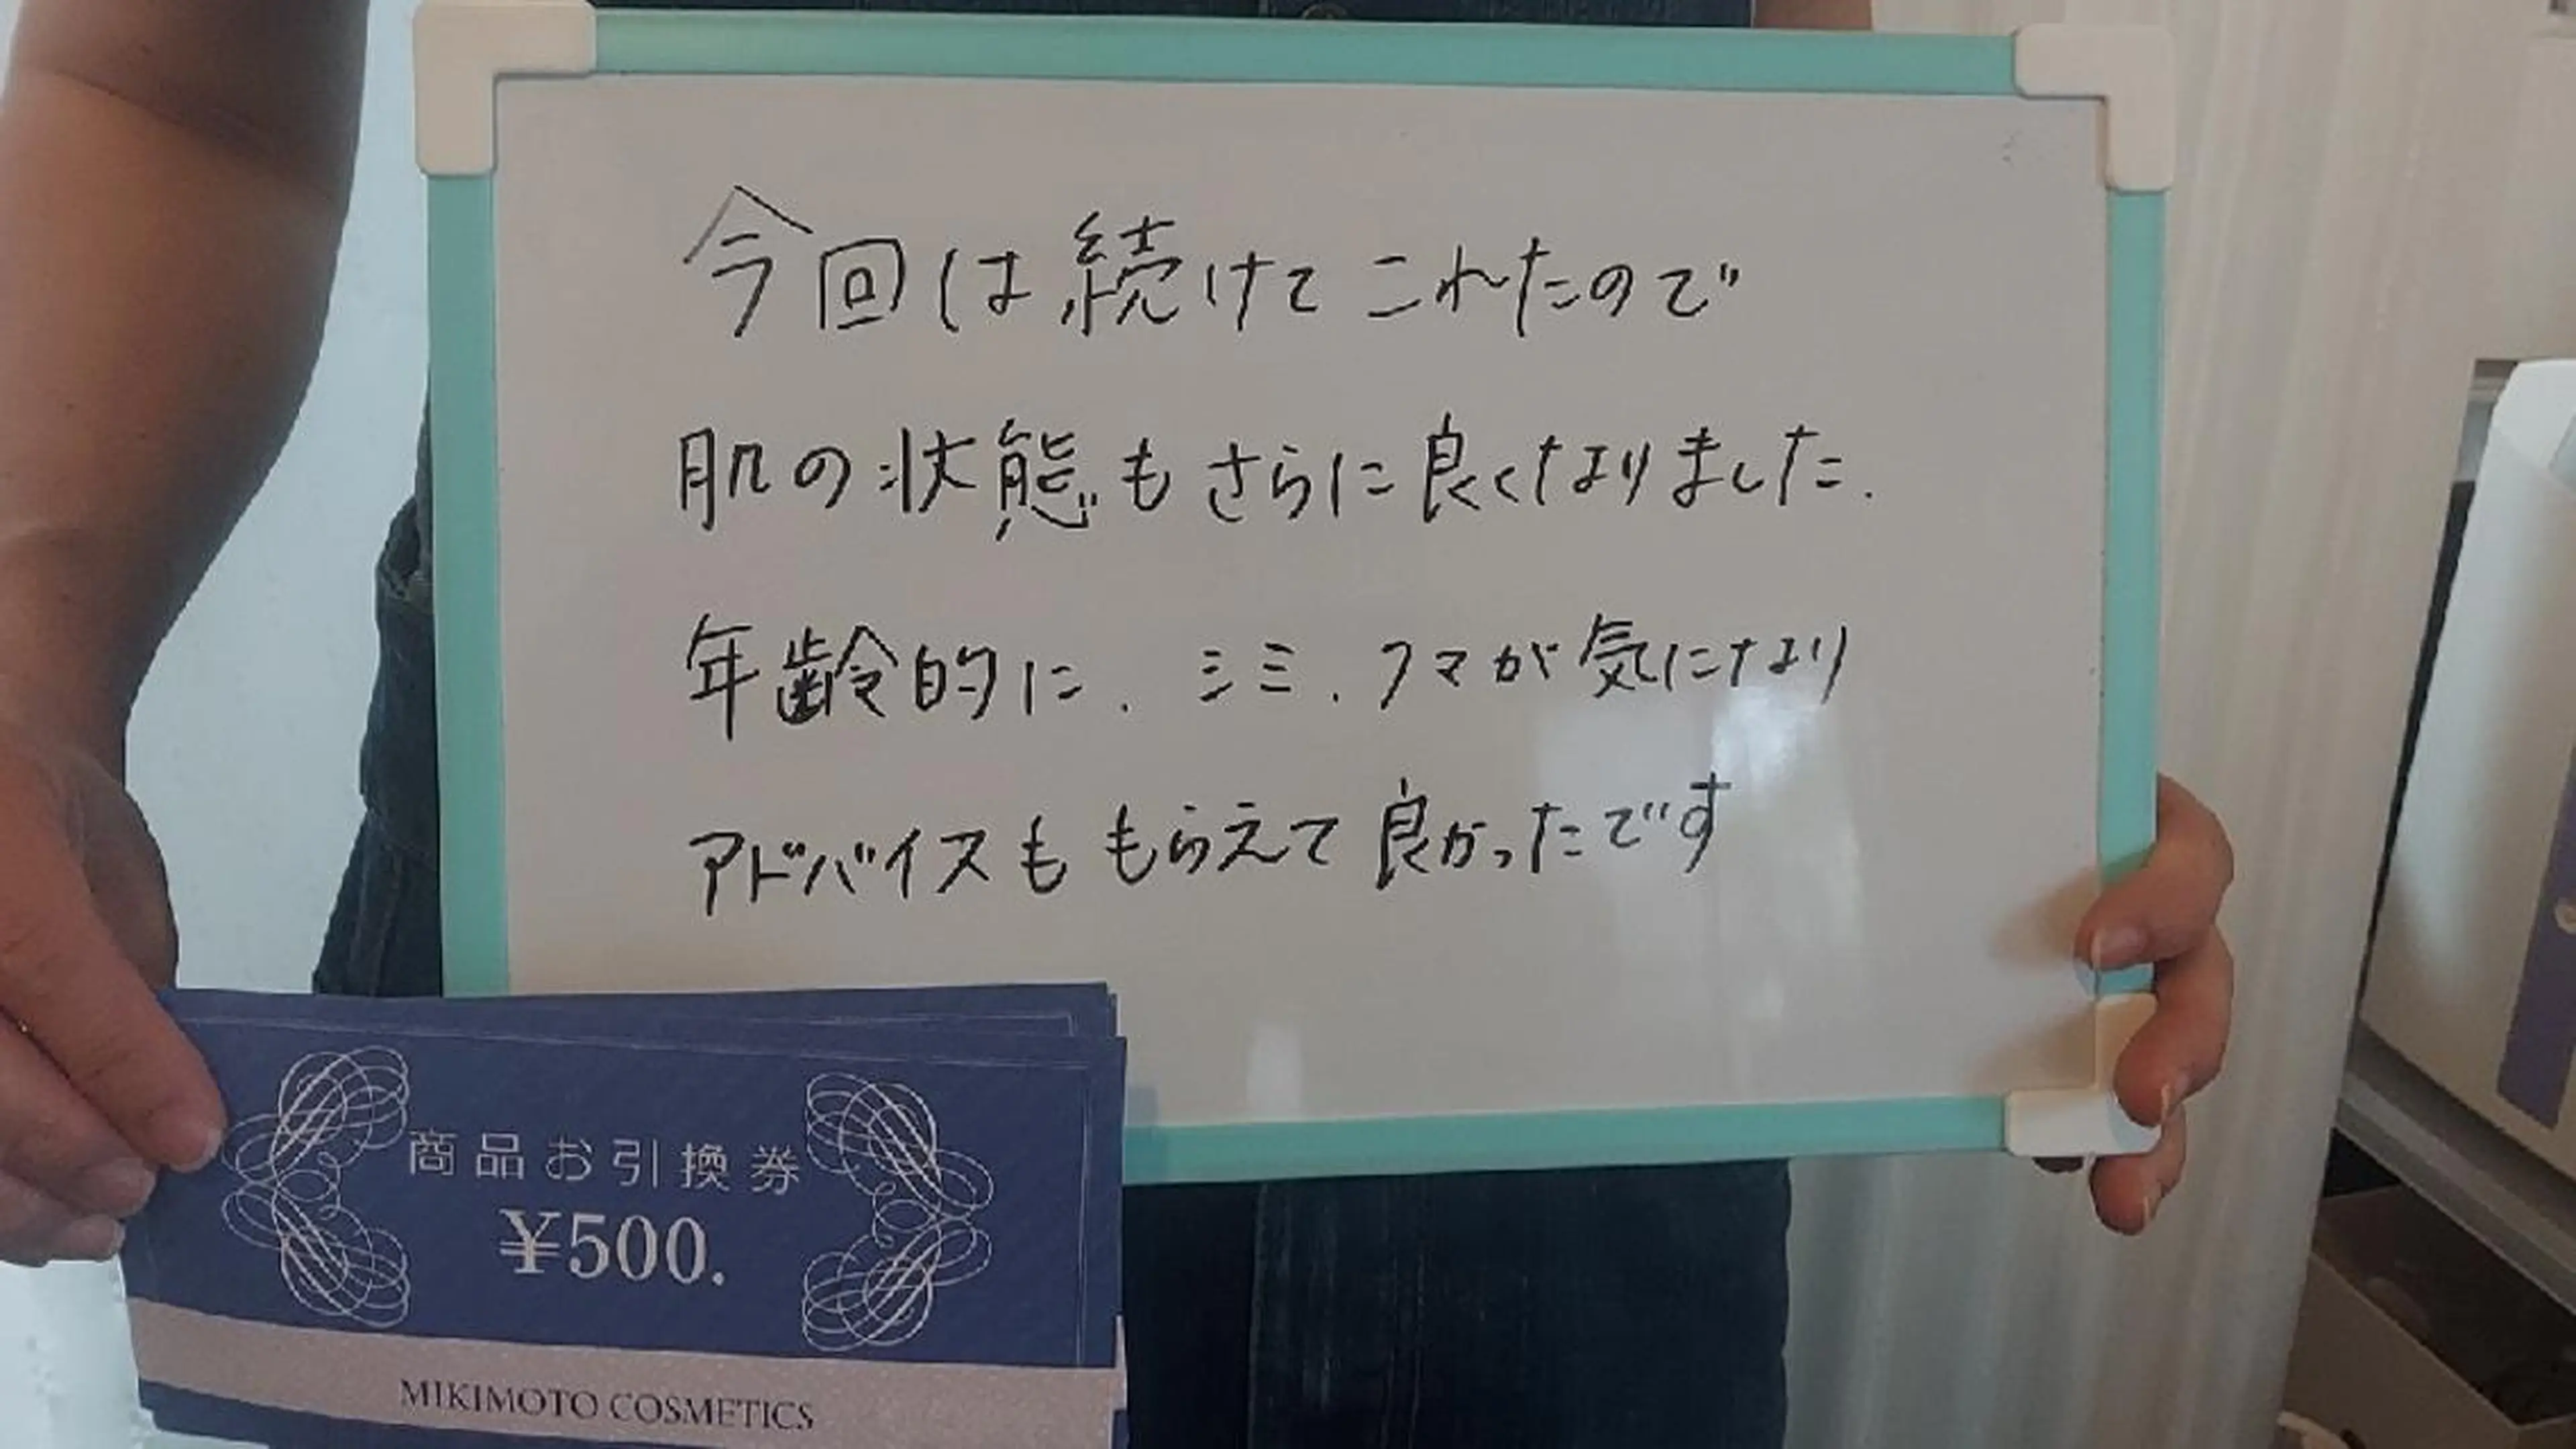 今回は続けてこれたので
肌の状態もさらに良くなりました.
年齢的に. シミ. クマが気になり
アドバイスももらえて良かったです
商品お引換券
¥500.
MIKIMOTO COSMETICS